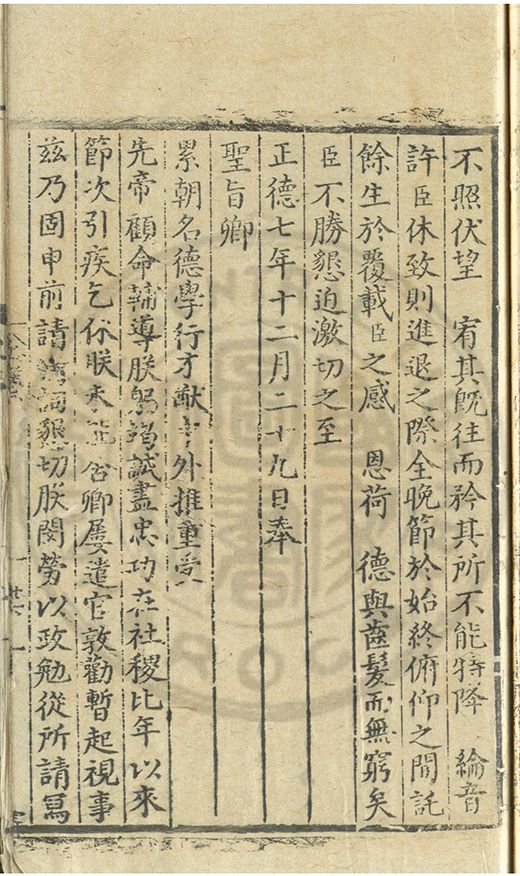 不照伏望 宥其既往而矜其所不能特降 綸音
許臣休致則進退之際全晚節於始終俯仰之間託
餘生於覆載臣之感 恩荷 德與齒髮而無窮矣
臣不勝懇迫激切之至
正德七年十二月二十九日奉
聖旨卿
累朝名德學行才猷外推重受
先帝顧命輔導朕躬誠盡忠功在社稷比年以來
節次引疾乞休朕卿屢遣官敦勸暫起視事
茲乃固申前請詞懇切朕閔勞以政勉從所請寫